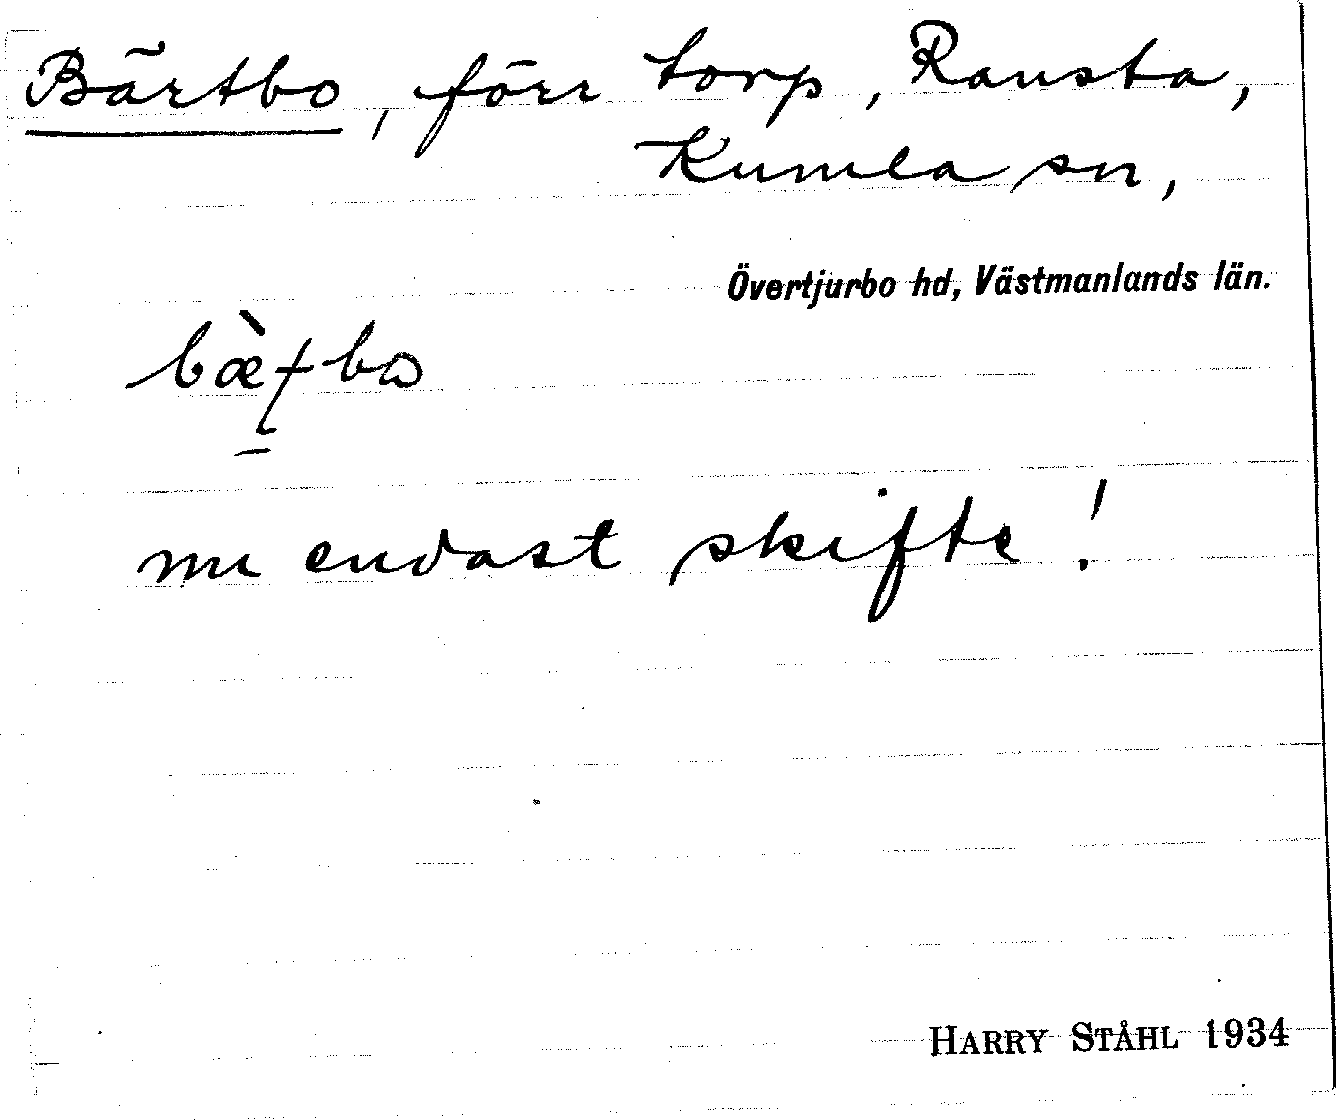 Bärtbo, förr torp, Ransta,
Kumla sn,
Övertjurbo hd, Västmanlands län.
nu endast skifte!
HARRY STÅHL 1934